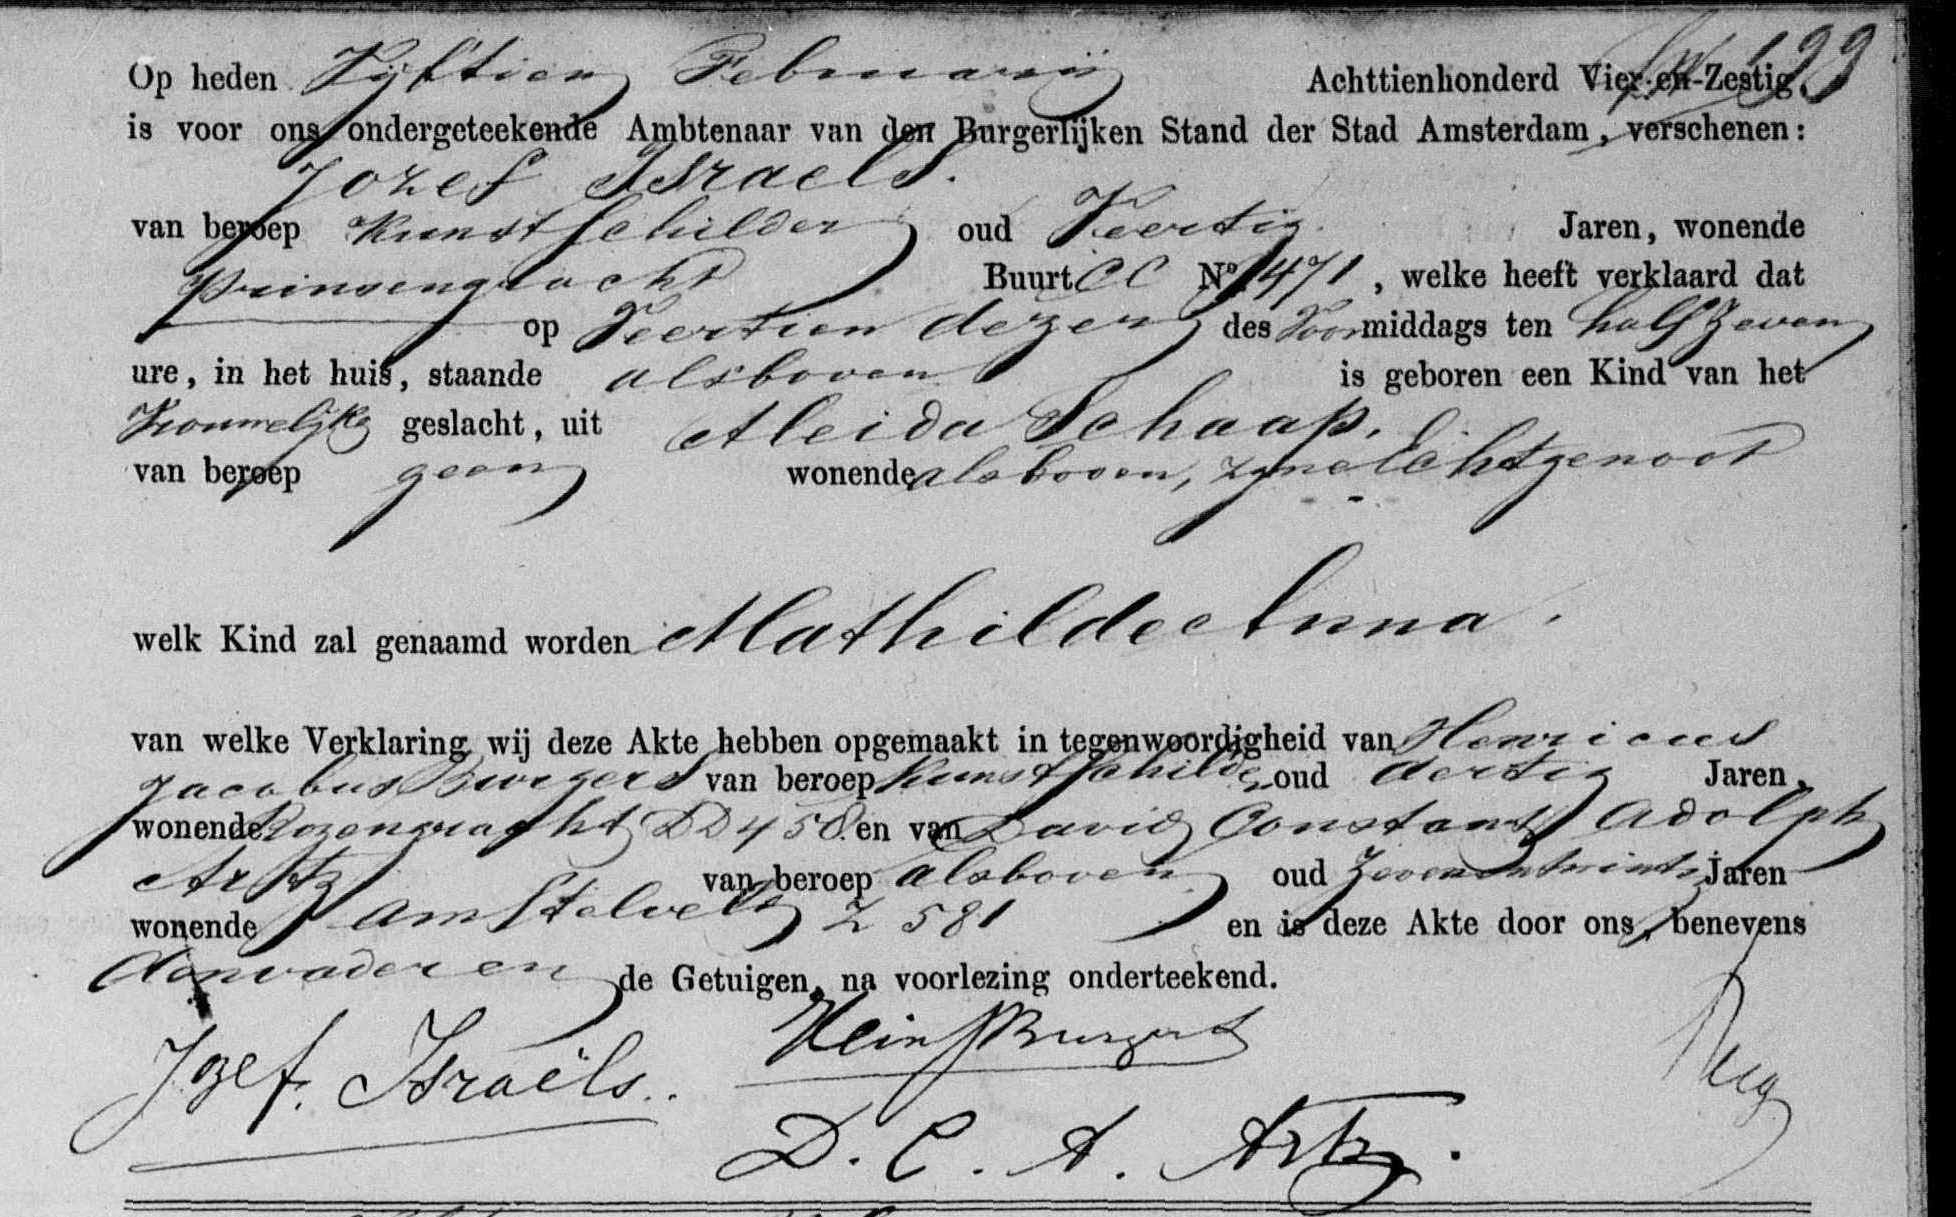 Op heden Vijftien Februarij Achttienhonderd Vier-en-Zestig,
is voor ons ondergeteekende Ambtenaar van den Burgerlijken Stand der Stad Amsterdam, verschenen:
Jozef Israels.
van beroep Kunstschilder oud Veertig Jaren, wonende
Prinsengracht Buurt CC No 471, welke heeft verklaard dat
op Veertien dezer des Voormiddags ten half Zeven
ure, in het huis, staande alsboven is geboren een Kind van het
Vrouwelijke geslacht, uit Aleida Schaap.
van beroep geen wonende alsboven, zyne Echtgenoot
welk Kind zal genaamd worden Mathilde Anna.
van welke Verklaring wij deze Akte hebben opgemaakt in tegenwoordigheid van Henricus
Jacobus Burgers van beroep Kunstschilder oud dertig Jaren,
wonende Rozengracht DD 458 en van David Constant Adolph
Artz van beroep alsboven oud Zevenentwintig Jaren
wonende Amstelveld Z 581 en is deze Akte door ons, benevens
den vader en de Getuigen, na voorlezing onderteekend.
Jozef Israëls.. Hein J Burgers
D. C. A. Artz.